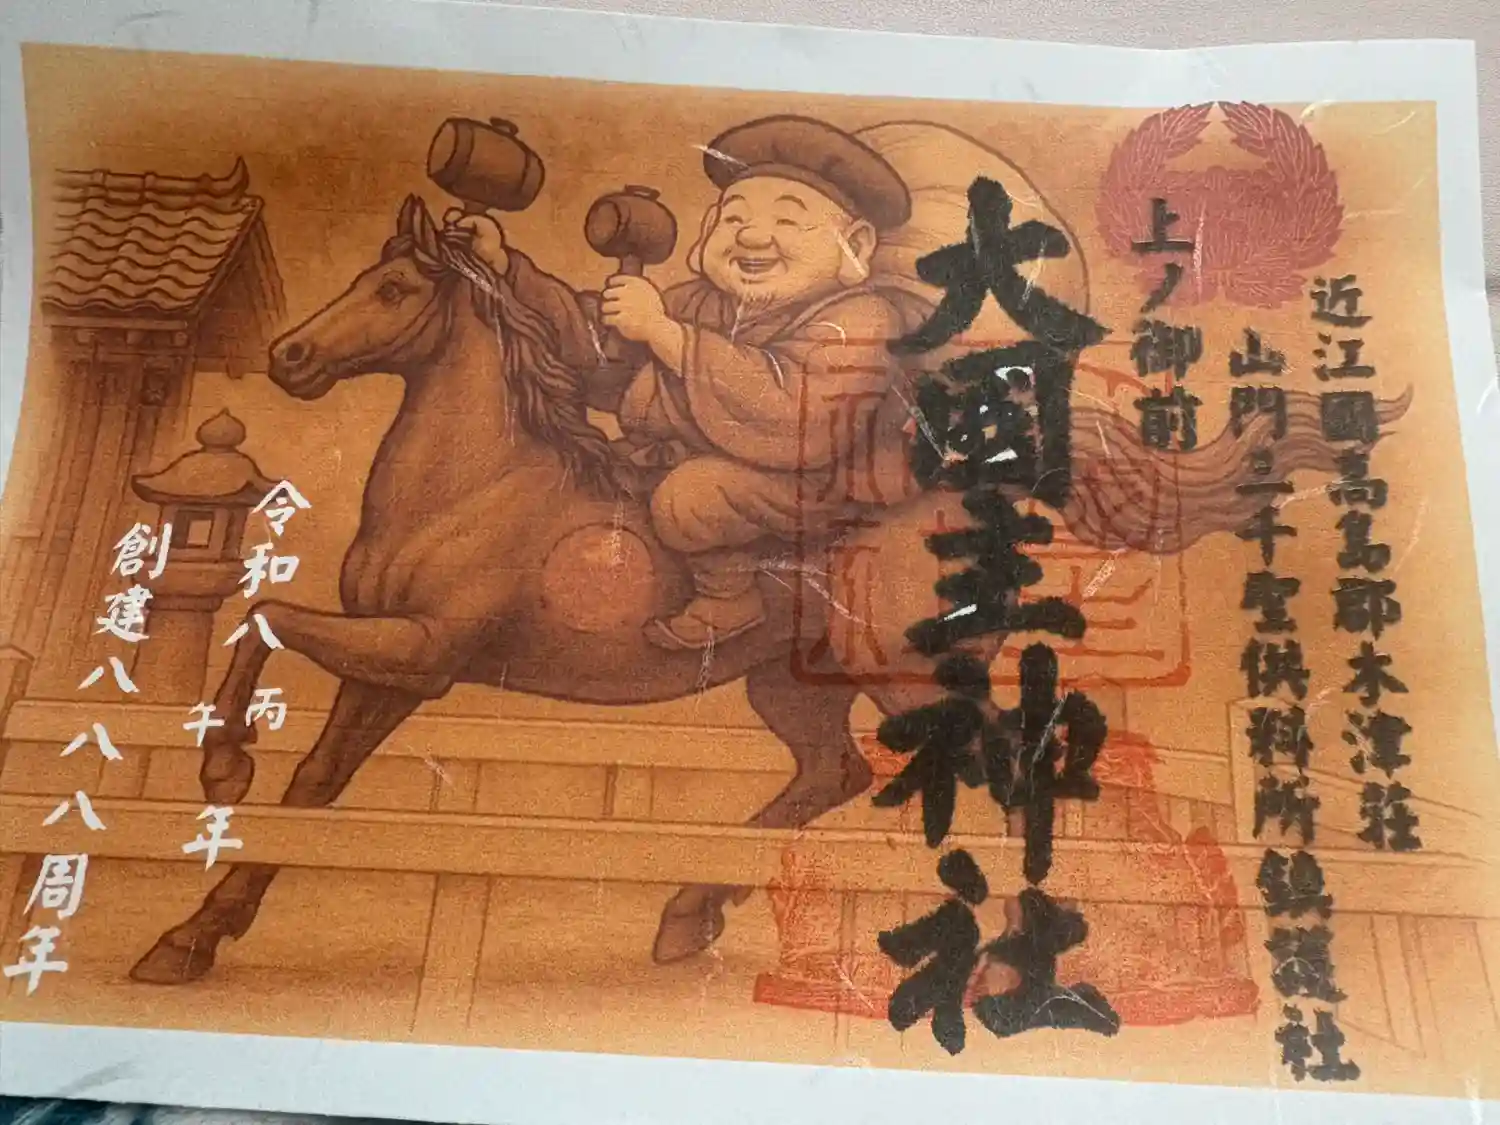 近江國高島郡木津荘
山門三千聖供料所鎮護社
上ノ御前
大國主神社
令和八丙午年
創建八八八周年